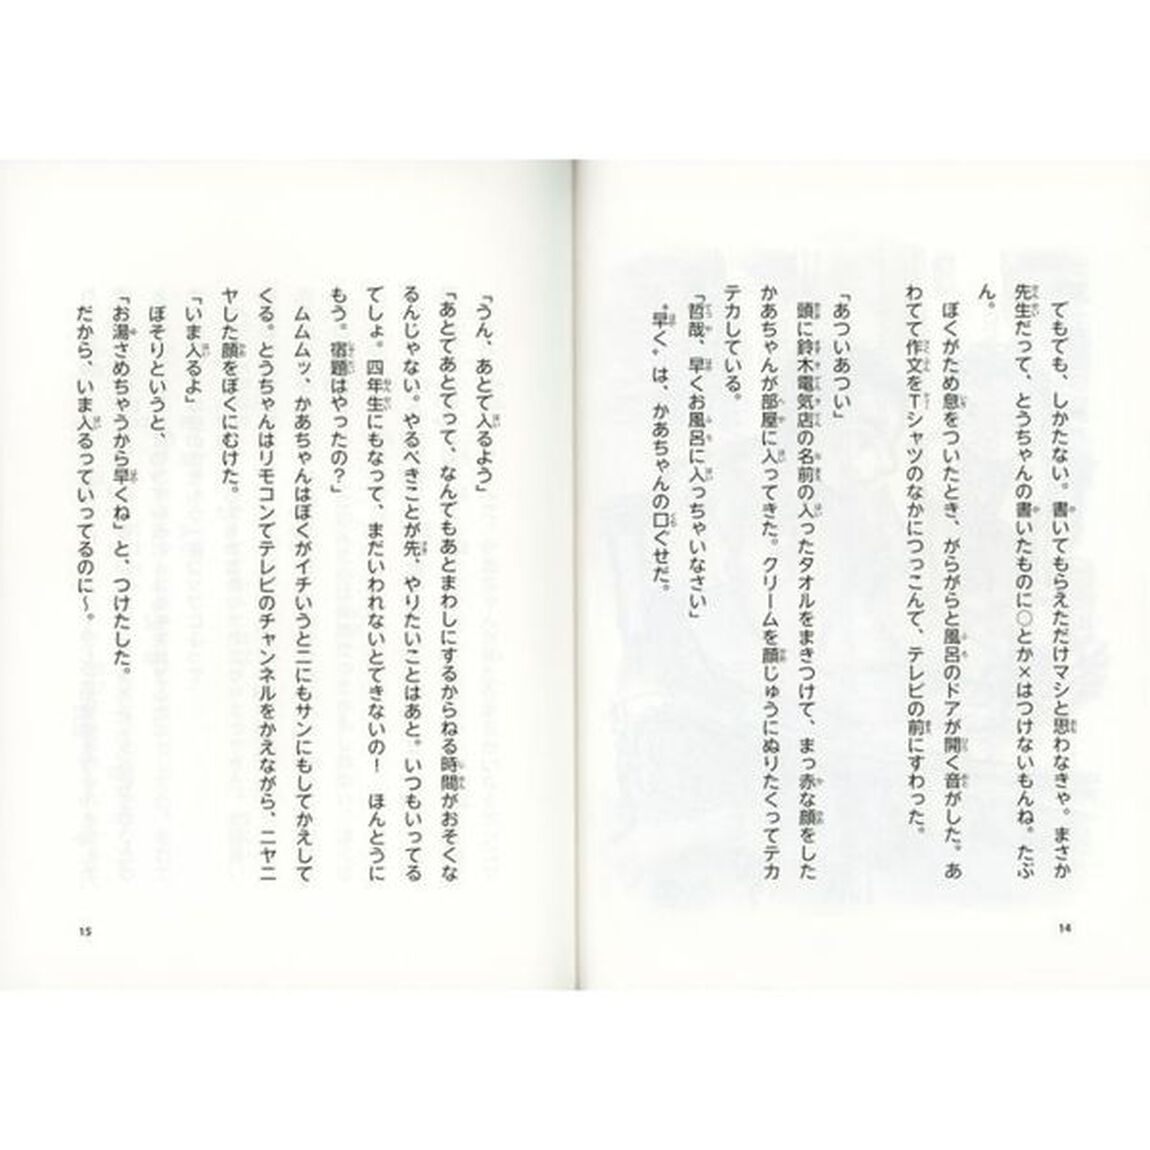 でもでも、しかたない。書いてもらえただけマシと思わなきゃ。まさか
先生だって、とうちゃんの書いたものに○とか×はつけないもんね。たぶ
ん。
ぼくがため息をついたとき、がらがらと風呂のドアが開く音がした。あ
わてて作文をTシャツのなかにつっこんで、テレビの前にすわった。
「あついあつい」
頭に鈴木電気店の名前の入ったタオルをまきつけて、まっ赤な顔をした
かあちゃんが部屋に入ってきた。クリームを顔じゅうにぬりたくってテカ
テカしている。
「哲哉、早くお風呂に入っちゃいなさい」
〝早く〟は、かあちゃんの口ぐせだ。
14
「うん、あとで入るよう」
「あとであとでって、なんでもあとまわしにするからねる時間がおそくな
るんじゃない。やるべきことが先、やりたいことはあと。いつもいってる
でしょ。四年生にもなって、まだいわれないとできないの！　ほんとうに
もう。宿題はやったの？」
ムムムッ、かあちゃんはぼくがイチいうとニにもサンにもしてかえして
くる。とうちゃんはリモコンでテレビのチャンネルをかえながら、ニヤニ
ヤした顔をぼくにむけた。
「いま入るよ」
ぼそりというと、
「お湯さめちゃうから早くね」と、つけたした。
だから、いま入るっていってるのに〜。
15